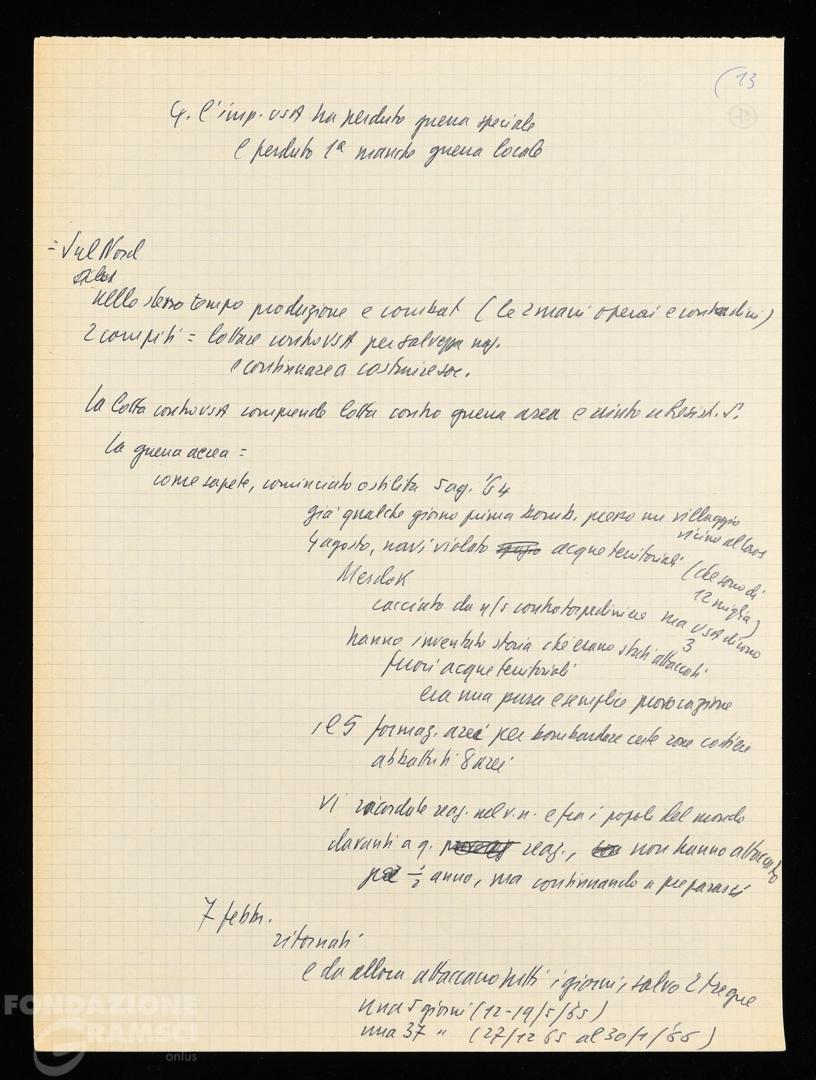 (13
78
4. l'imp. USA ha perduto guerra speciale
e perduto 1ª manche guerra locale
= Sul Nord
nello stesso tempo produzione e combat (le 2 mani operai e contadini)
2 compiti = lottare contro USA per salvezza naz.
e continuare a costruire soc.
la lotta contro USA comprende lotta contro guerra area e aiuto a Resist. S.
la guerra aerea =
come sapete, cominciato ostilità 5 ag. '64
già qualche giorno prima bomb. presso un villaggio
vicino al Laos
4 agosto, navi violato acque territoriali (che sono di
12 miglia)
Mesdok
cacciato da n/s controtorpediniere ma USA dicono
3
hanno inventato storia che erano stati attaccati
fuori acque territoriali
era una pura e semplice provocazione
il 5 formaz. aerei per bombardare certe zone costiere
abbattuti 8 aerei
vi ricordate reaz. nel v.n. e fra i popoli del mondo
davanti a q. reaz., non hanno attaccato
per ½ anno, ma continuando a prepararsi
7 febbr.
ritornati
e da allora attaccano tutti i giorni, salvo 2 tregue
una 5 giorni (12-19/5/65)
una 37 " (27/12 65 al 30/1/'66)
FONDAZIONE
GRAMSCI
onlus